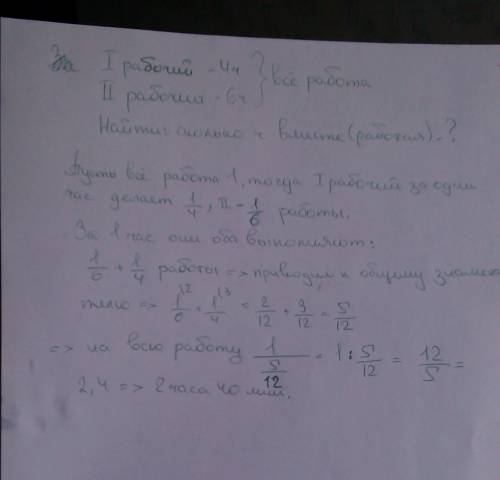 За I рабочий - 4ч } всё работа
II рабочиа - 6ч
Найти: сколько ч вместе (работая) - ?
Пусть всё работа 1, тогда I рабочий за один
час делает 1/4, II - 1/6 работы.
За 1 час они оба выполняют:
1/6 + 1/4 работы => приводим к общему знамена
телю => 1/6 + 1/4 = 2/12 + 3/12 = 5/12
=> на всю работу 1/(5/12) = 1 : 5/12 = 12/5 =
2,4 => 2 часа 40 мин.